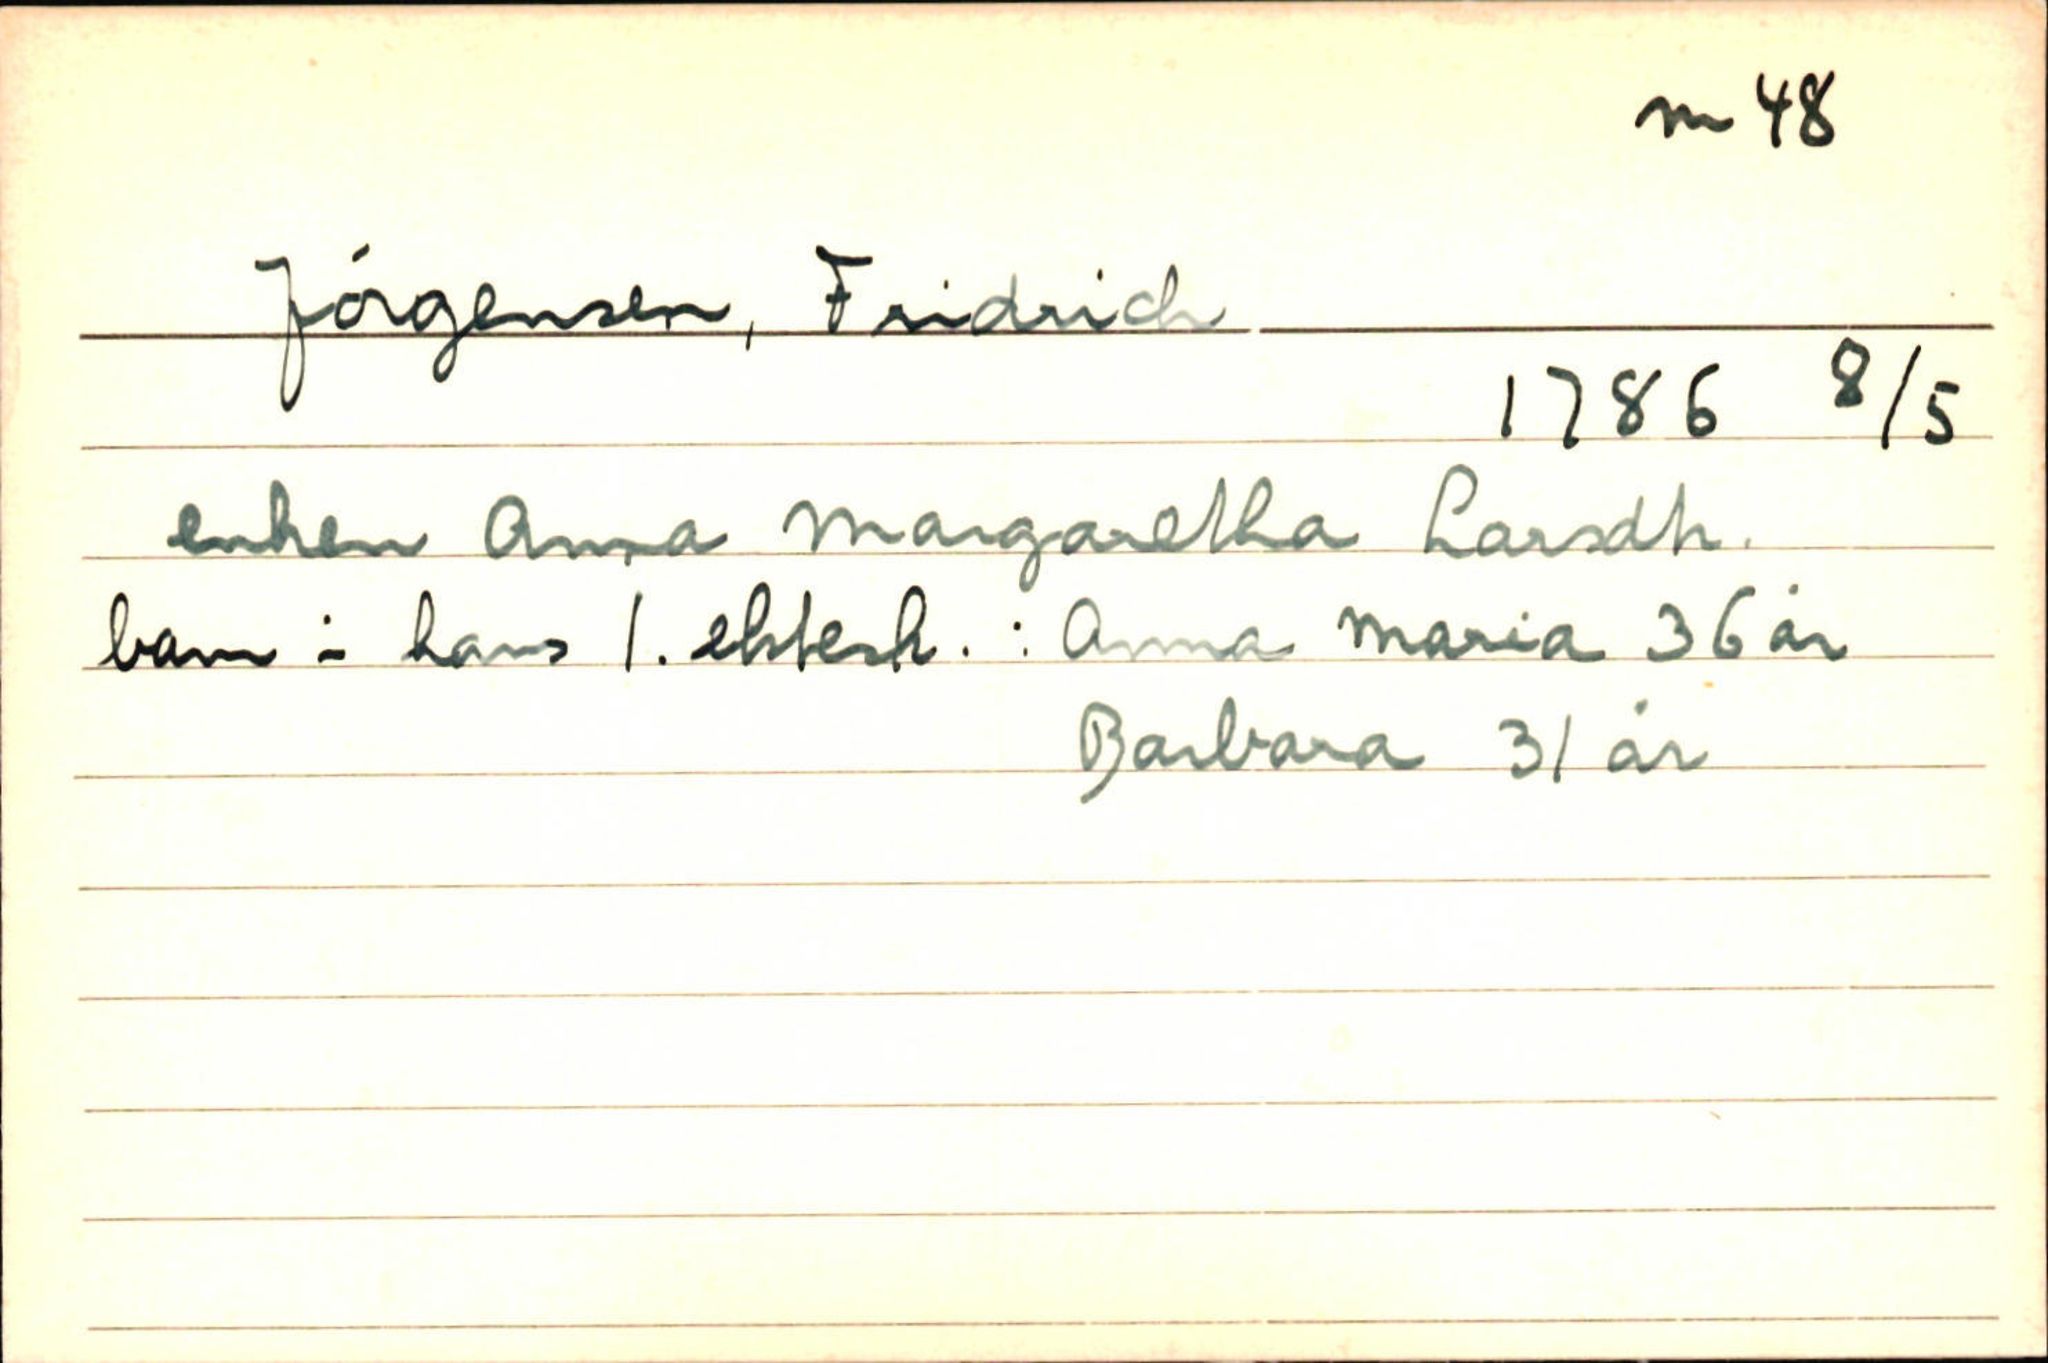 m 48
Jórgensen, Fridrich
1786 8/5
enken Anna Margaretha Larsdtr.
barn i hans 1. ektesk. : Anna Maria 36 år
Barbara 31 år